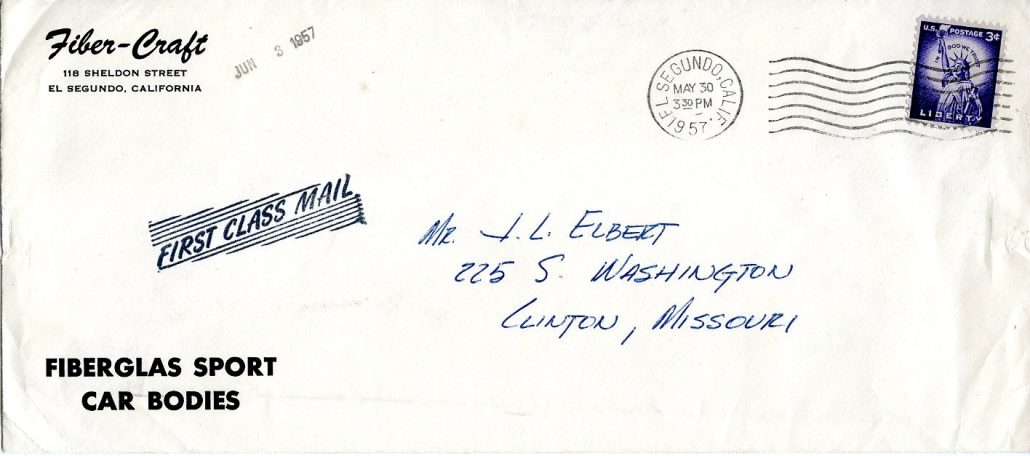 Fiber-Craft
118 SHELDON STREET
EL SEGUNDO, CALIFORNIA
JUN 3 1957
EL SEGUNDO, CALIF.
MAY 30
3 30 PM
1957
U.S. POSTAGE 3¢
IN GOD WE TRUST
LIBERTY
FIRST CLASS MAIL
MR. J. L. ELBERT
225 S. WASHINGTON
CLINTON, MISSOURI
FIBERGLAS SPORT
CAR BODIES